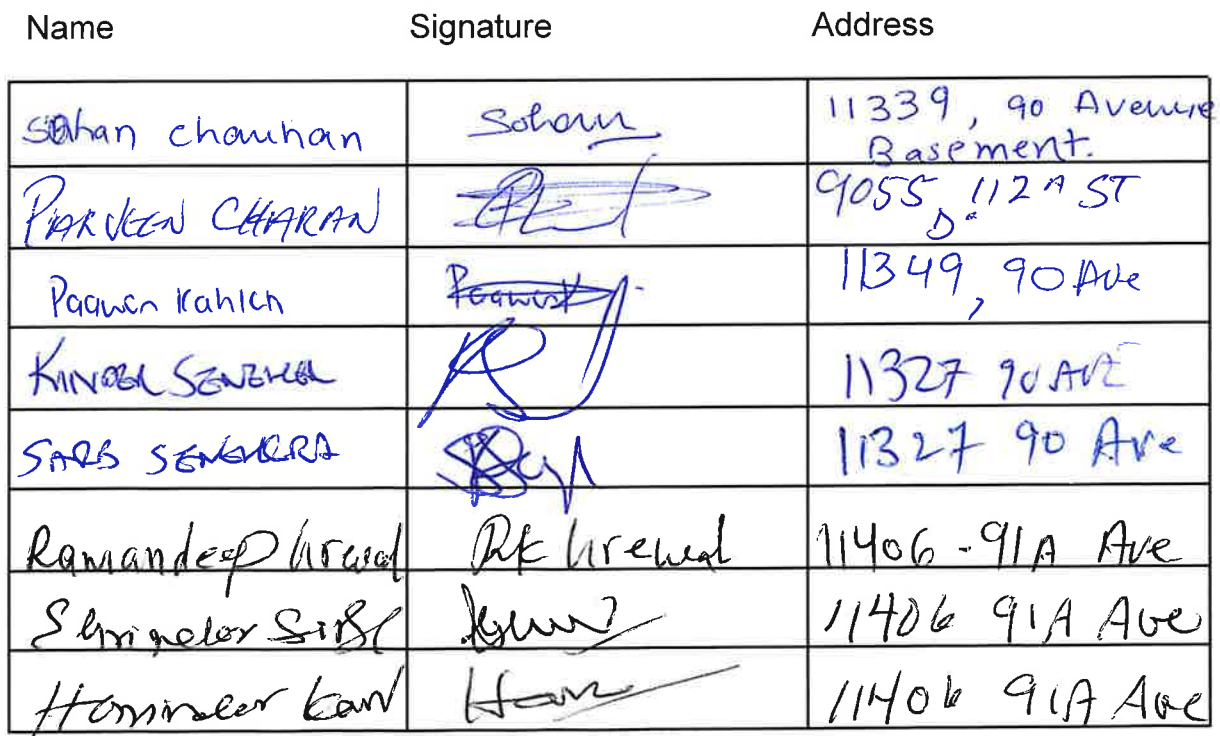 Name Signature Address
Sohan chauhan Sohan 11339, 90 Avenue
Basement.
PARVEEN CHARAN 9055, 112A ST
Paawan Kahlon Paawan K 11349, 90 Ave
KINDER 11327 90 AVE
SARB SENGHERA 11327 90 Ave
Ramandeep Grewal RK Grewal 11406-91A Ave
11406 91A Ave
Harminder Kaur 11406 91A Ave